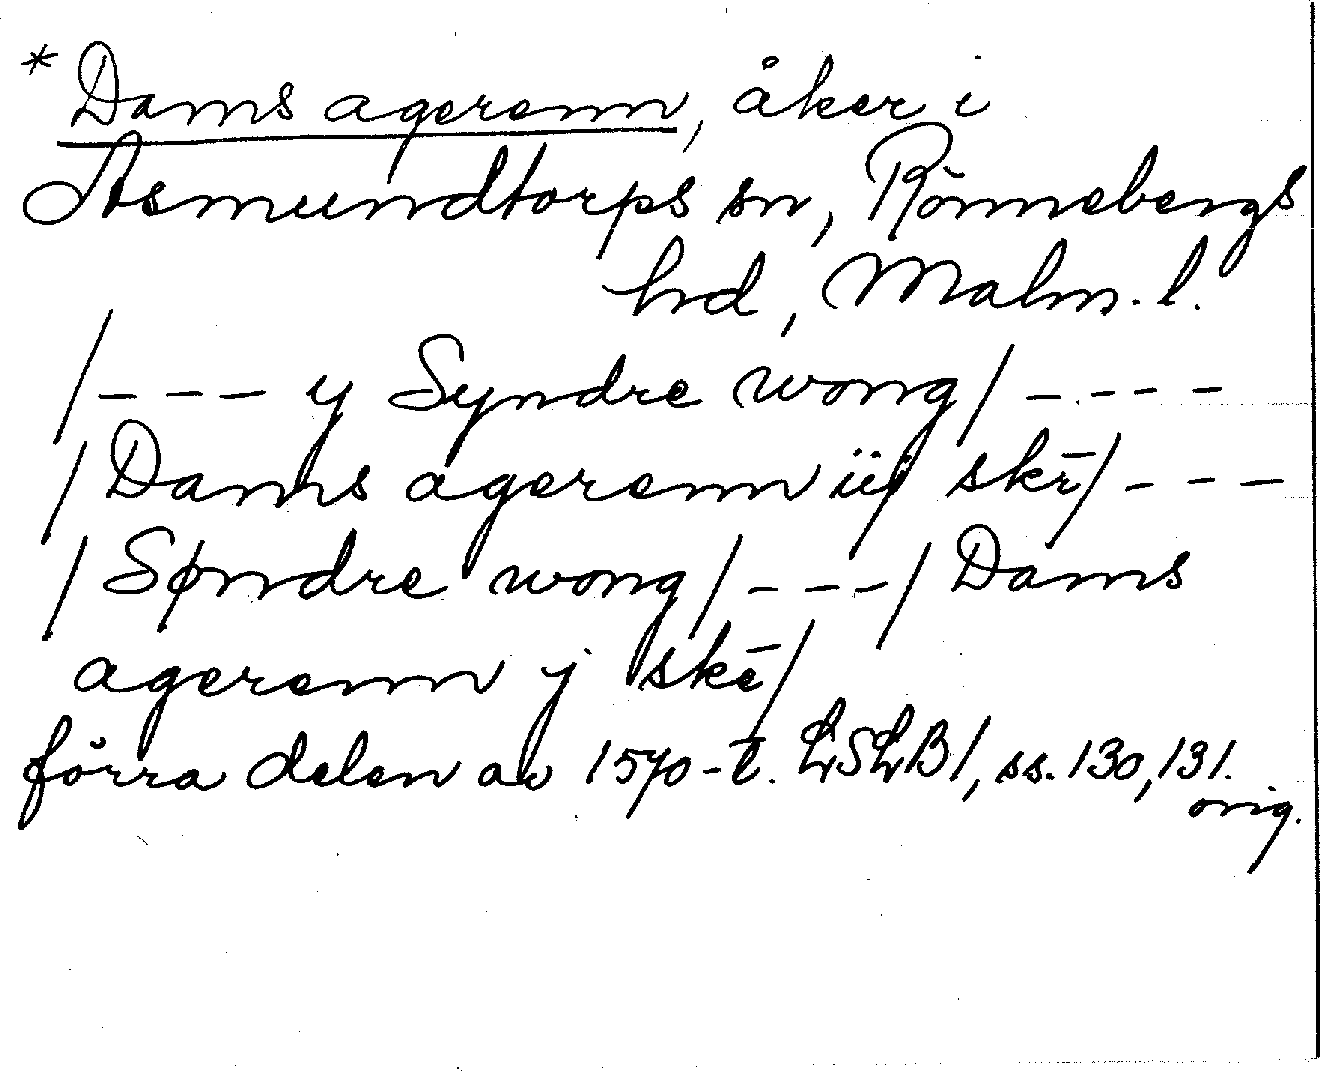 * Dams agerenn, åker i
Asmundtorps sn, Rönnebergs
hd, Malm. l.
/--- y Syndre wong/----
/Dams agerenn iij skē/---
/Søndre wong/---/Dams
agerenn j skē/
förra delen av 1570-t. LSLB1, ss. 130, 131.
orig.